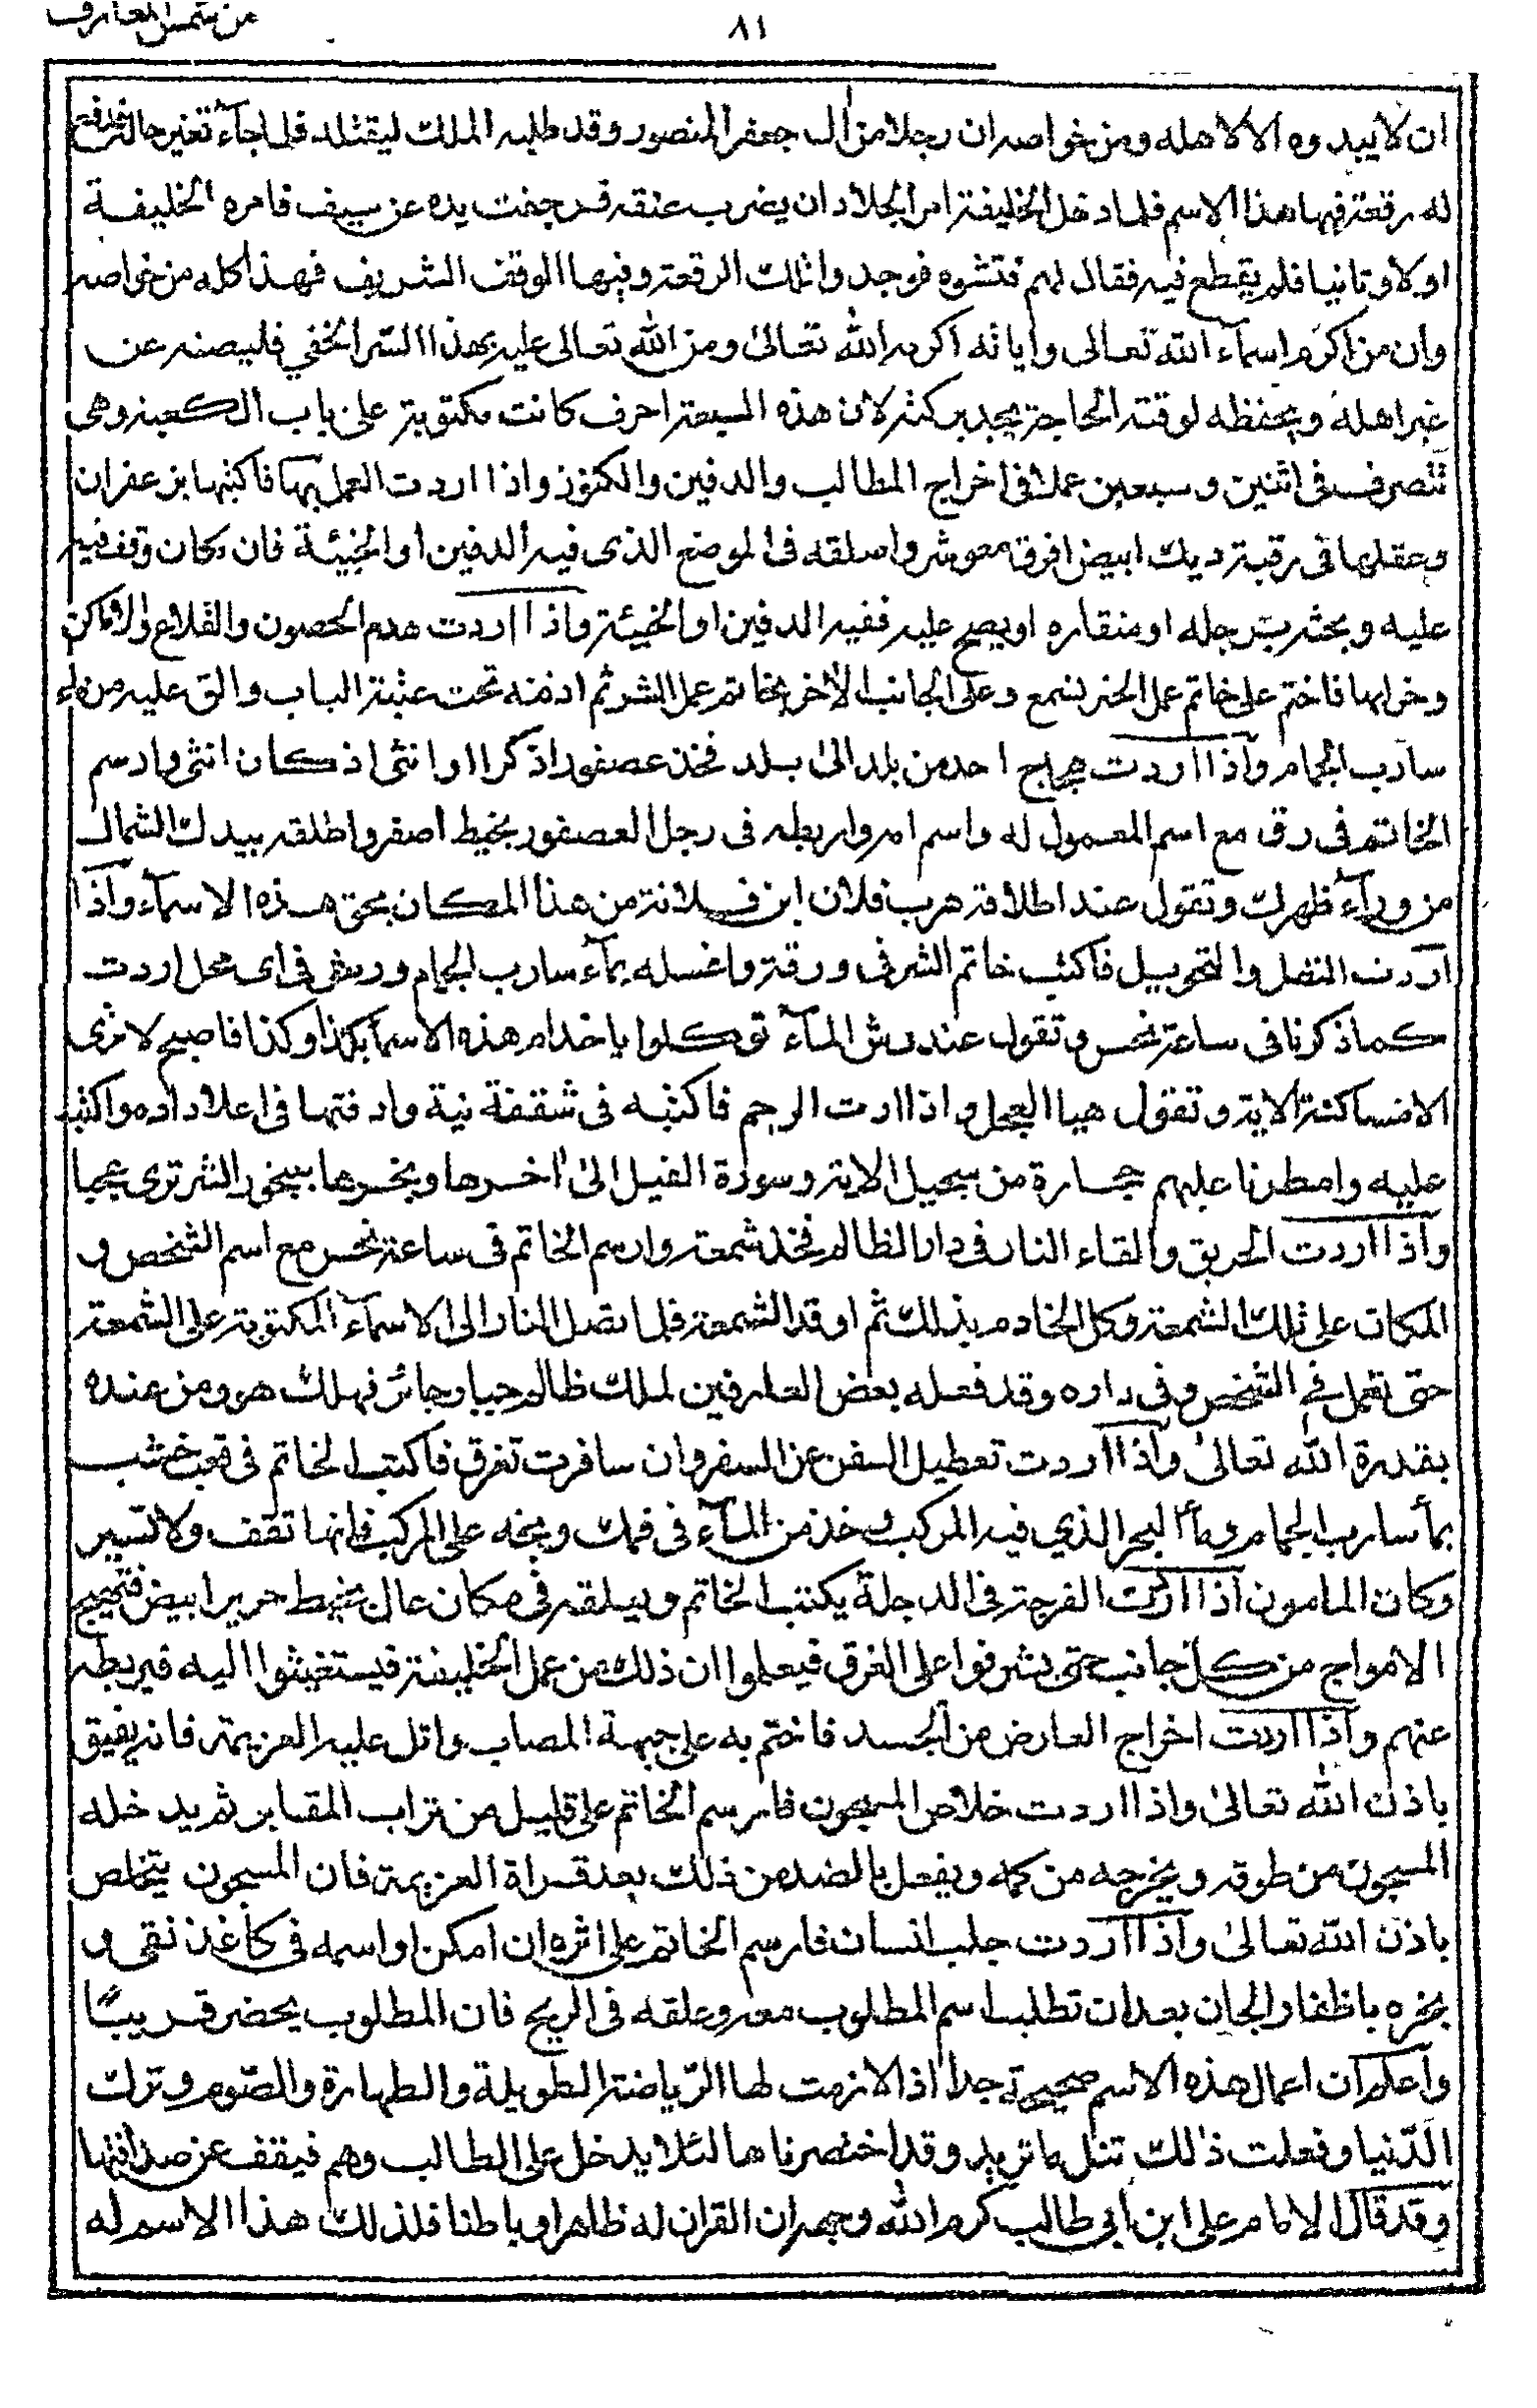 من شمس المعارف
٨١
ان لا يبدوه الا لاهله ومن خواصه ان رجلا من آل جعفر المنصور وقد طلبه الملك ليقتله فلما جآء تغير حاله فدفع
له رقعة فيها هذا الاسم فلما دخل الخليفة امر الجلاد ان يضرب عنقه فرجفت يده عن سيف فامره الخليفة
اولا وثانيا فلم يقطع فيه فقال لهم فتشوه فوجدوا تلك الرقعة وفيها الوقف الشريف فهذا كله من خواصه
وان من اكرم اسمآء الله تعالى واياته اكرمه الله تعالى ومن الله تعالى عليه بهذا السر الخفي فليصنه عن
غير اهله ويحفظه لوقته الحاجة يجد بركته لان هذه السبعة احرف كانت مكتوبة على باب الكعبة وهى
تتصرف فى اثنين وسبعين عملا فى اخراج المطالب والدفين والكنوز واذا اردت العمل بها فاكتبها بزعفران
وعقلها فى رقبة ديك ابيض افرق معوشر واسلقه فى الموضع الذى فيه الدفين او الخبيئة فان كان وقف فيه
عليه وبحثه برجله او منقاره او يصيح عليه ففيه الدفين او الخبيئة واذا اردت هدم الحصون والقلاع والاماكن
وخرابها فاختم على خاتم عمل الخير بشمع وعلى الجانب الأخر بخاتم عمل الشر ثم ادفنه تحت عتبة الباب والق عليه من ماء
سارب الحمام واذا اردت هجاج احد من بلد الى بلد فخذ عصفورا ذكرا او انثى اذ كان انثى وارسم
الخاتم فى رق مع اسم المعمول له واسم امه واربطه فى رجل العصفور بخيط اصفر واطلقه بيدك الشمال
من ورآء ظهرك وتقول عند اطلاقه هرب فلان ابن فلانة من هذا المكان بحق هذه الاسمآء واذا
اردت النقل والتحويل فاكتب خاتم الشر فى ورقة واغسله بمآء سارب الحمام ورش فى اى محل اردت
كما ذكرنا فى ساعة نحس وتقول عند رش المآء توكلوا ياخدام هذه الاسما بكذا وكذا فاصبح لا ترى
الا مساكنه الاية وتقول هيا العجل واذا اردت الرجم فاكتبه فى شقفة نية وادفنها فى اعلا داره واكتب
عليه وامطرنا عليهم حجارة من سجيل الاية وسورة الفيل الى اخرها وبخرها ببخور الشر ترى عجبا
واذا اردت الحريق والقاء النار فى دار الظالم فخذ شمعة وارسم الخاتم فى ساعة نحس مع اسم الشخص و
المكان على تلك الشمعة وكل الخادم بذلك ثم اوقد الشمعة فلما تصل النار الى الاسمآء المكتوبة على الشمعة
حتى تعمل في الشخص وفى داره وقد فعله بعض العارفين لملك ظالم جبار جائر فهلك هو ومن عنده
بقدرة الله تعالى واذا اردت تعطيل السفن عن السفر وان سافرت تغرق فاكتب الخاتم فى قعب خشب
بمأ سارب الحمام ومأ البحر الذي فيه المركب وخذ من المآء فى فمك وبخه على المركب فانها تقف ولا تسير
وكان المامون اذا اراد الفرجة فى الدجلة يكتب الخاتم ويعلقه فى مكان عال بخيط حرير ابيض فتهيج
الامواج من كل جانب حتى يشرفوا على الغرق فيعلموا ان ذلك من عمل الخليفة فيستغيثوا اليه فيربطه
عنهم واذا اردت اخراج العارض من الجسد فاختم به على جبهة المصاب واتل عليه العزيمة فانه يفيق
باذن الله تعالى واذا اردت خلاص المسجون فارسم الخاتم على قليل من تراب المقابر ثم يدخله
المسجون من طوقه ويخرجه من كمه ويفعل بالضد من ذلك بعد قراة العزيمة فان المسجون يتخلص
باذن الله تعالى واذا اردت جلب انسان فارسم الخاتم على اثره ان امكن او اسمه فى كاغذ نقى و
بخره باظفار الجان بعد ان تطلب اسم المطلوب معه وعلقه فى الريح فان المطلوب يحضر قريبًا
واعلم ان اعمال هذه الاسم صحيحة جدا اذا لازمت لها الرياضة الطويلة والطهارة والصوم وترك
الدنيا وفعلت ذلك تنل ما تريد وقد اختصرناها لئلا يدخل على الطالب وهم فيقف عن صدافتها
وقد قال الامام على ابن ابي طالب كرم الله وجهه ان القران له ظاهرا وباطنا فلذلك هذا الاسم له